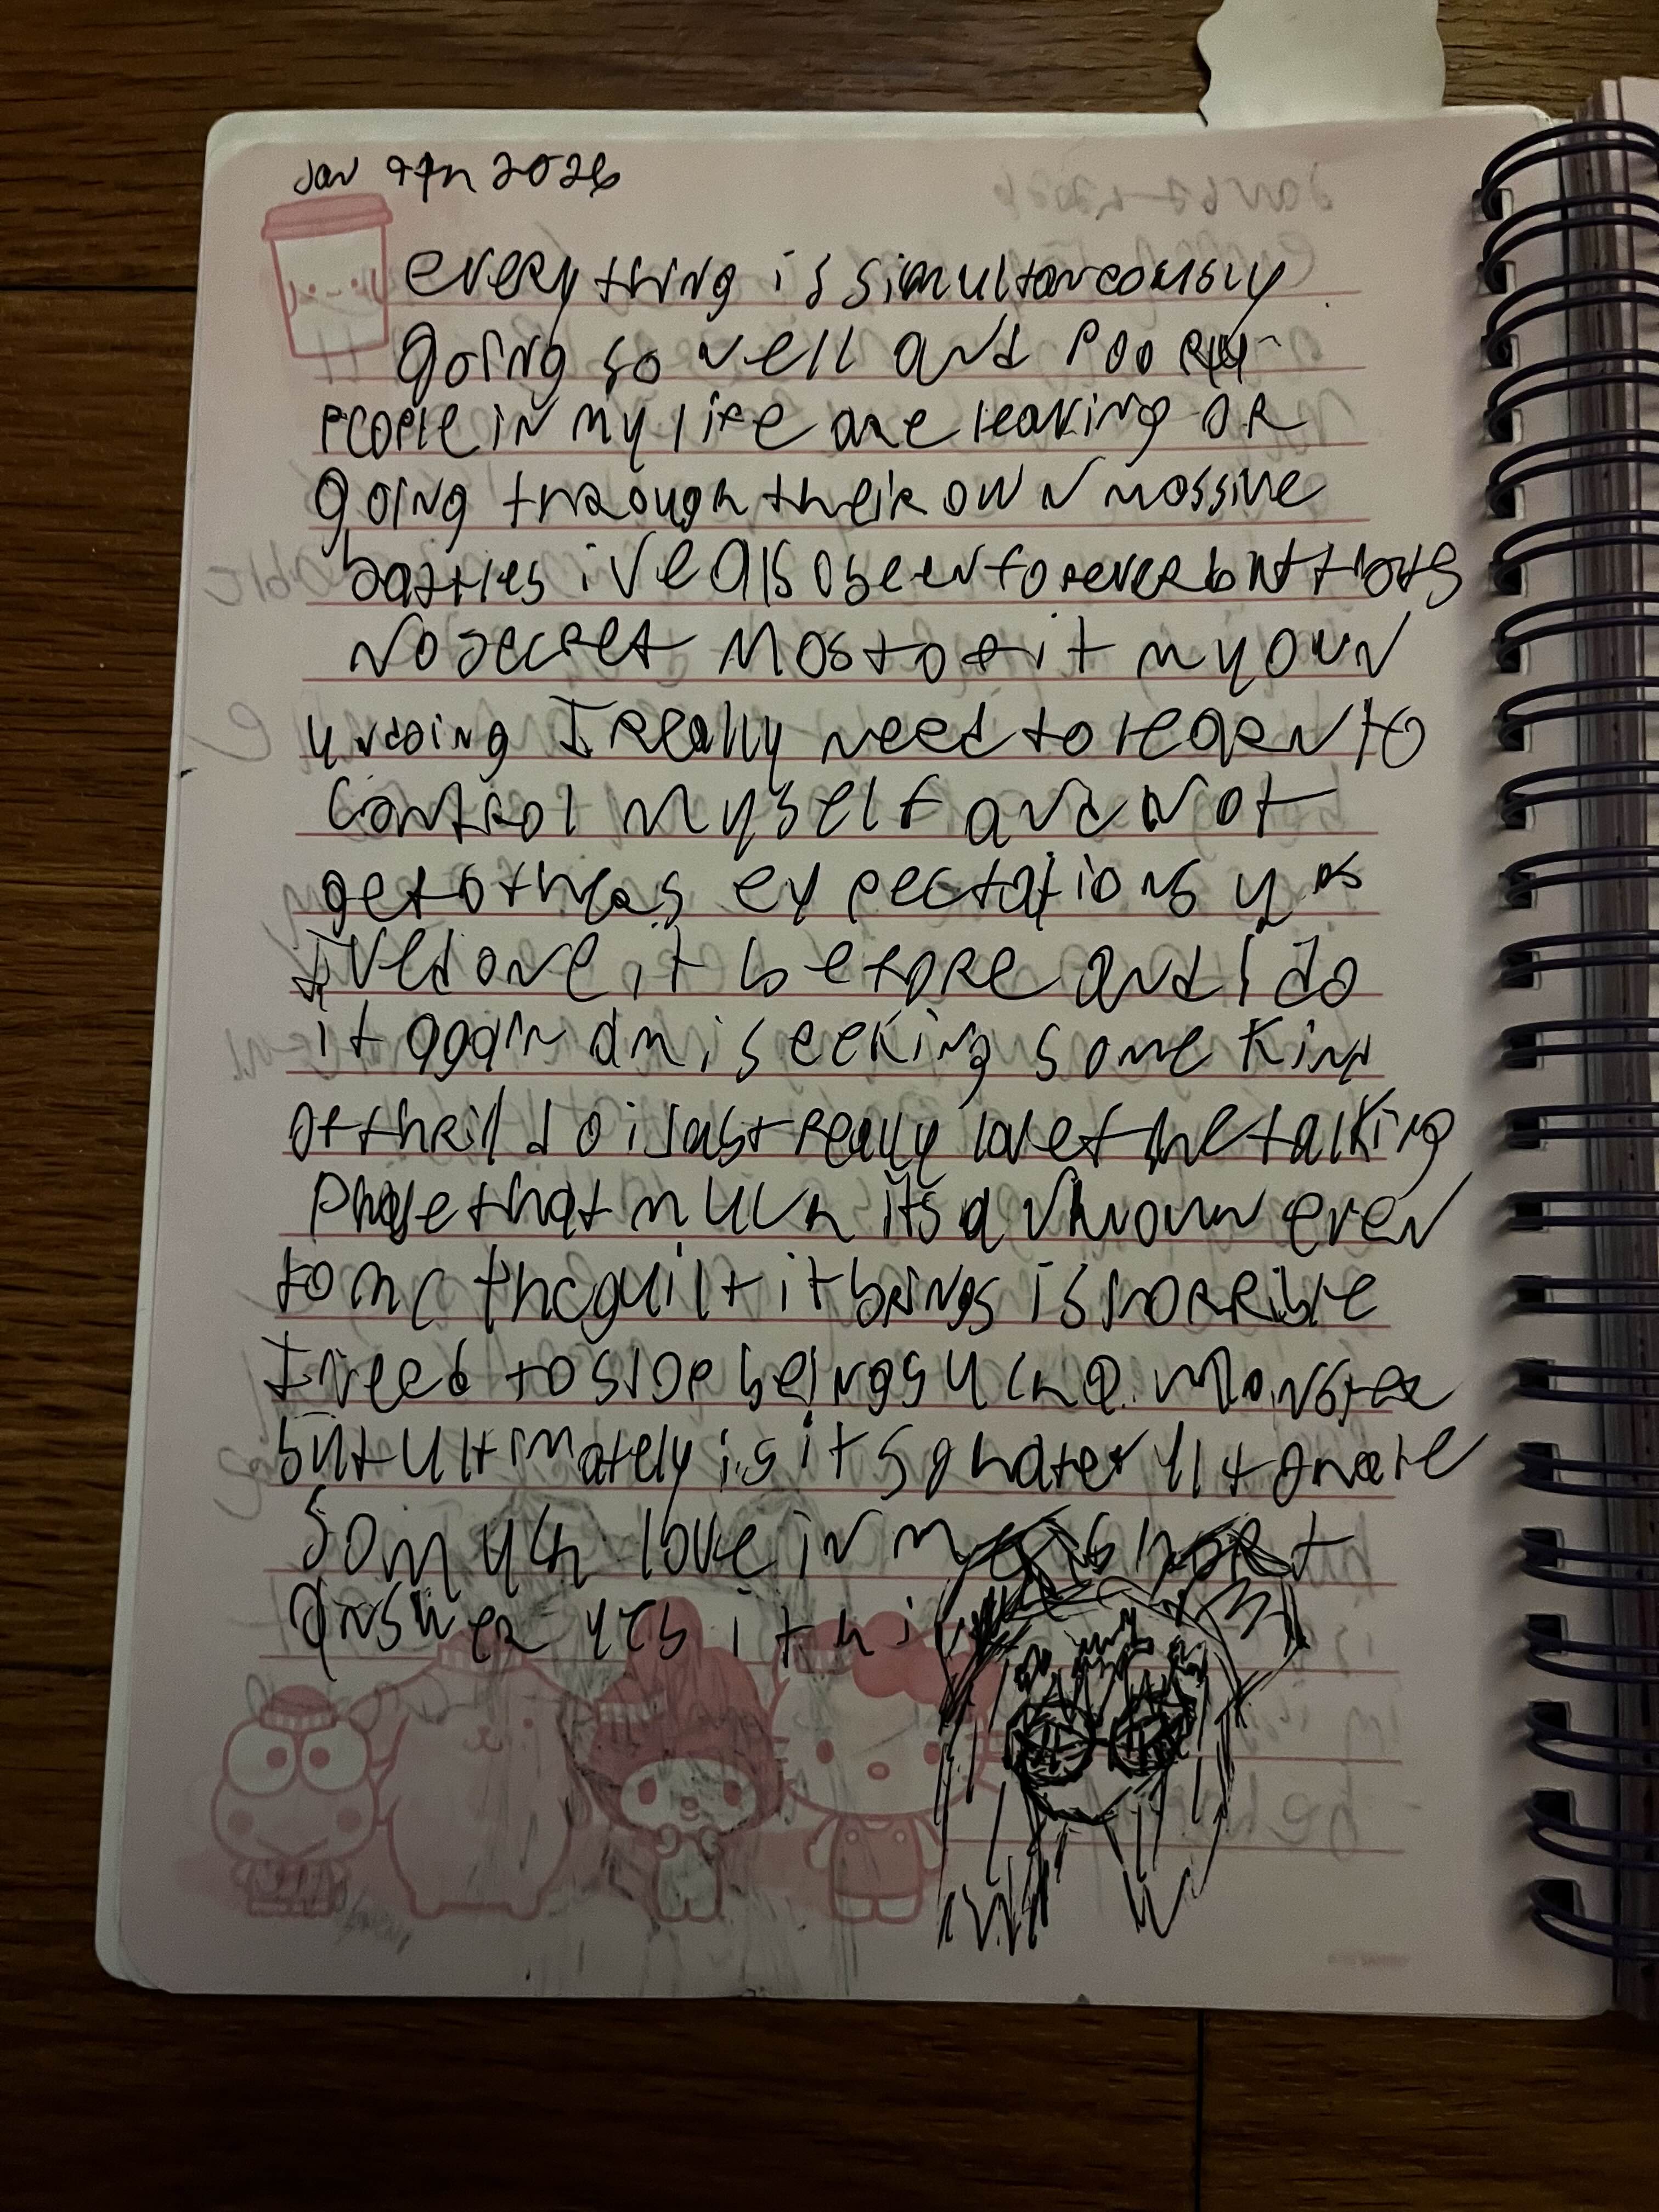 Jan 9th 2026
everything is simultaneously
going so well and poorly
people in my life are leaving or
going through their own massive
battles ive also been forever but thats
no secret Most of it my own
undoing I really need to learn to
control myself and not
get others expectations up
Ive done it before and i do
it again am i seeking some kind
of thrill do i just really love the talking
phase that much its a unknown even
to me the guilt it brings is horrible
I need to stop being such a monster
but ultimately is it so
So much love in me short
answer yes it